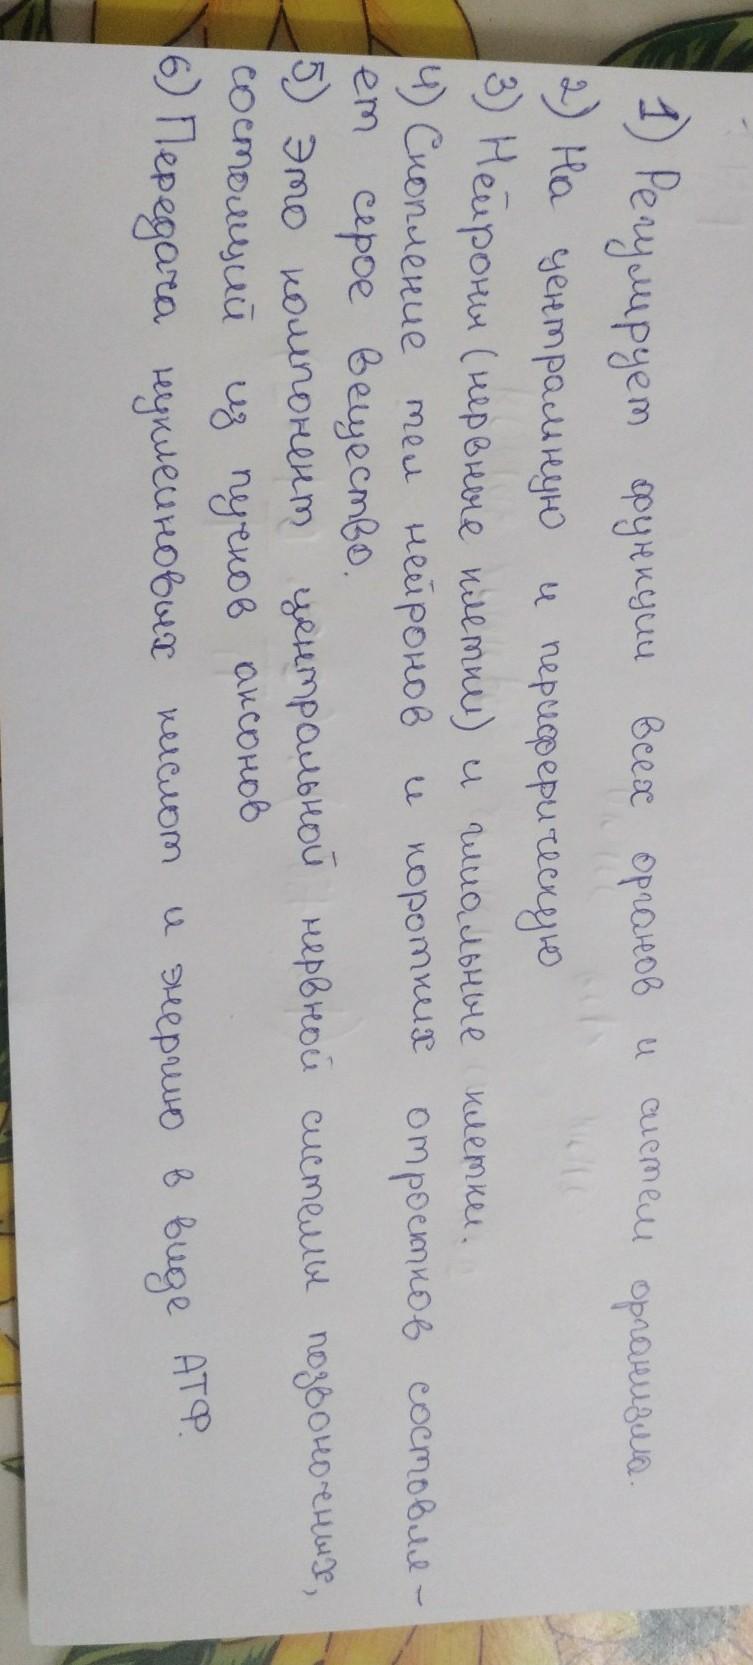 1) Регулирует функции всех органов и систем организма.
2) На центральную и периферическую
3) Нейроны (нервные клетки) и глиальные клетки.
4) Скопление тел нейронов и коротких отростков состовля-
ет серое вещество.
5) Это компонент центральной нервной системы позвоночных,
состоящий из пучков аксонов
6) Передача нуклеиновых кислот и энергию в виде АТФ.